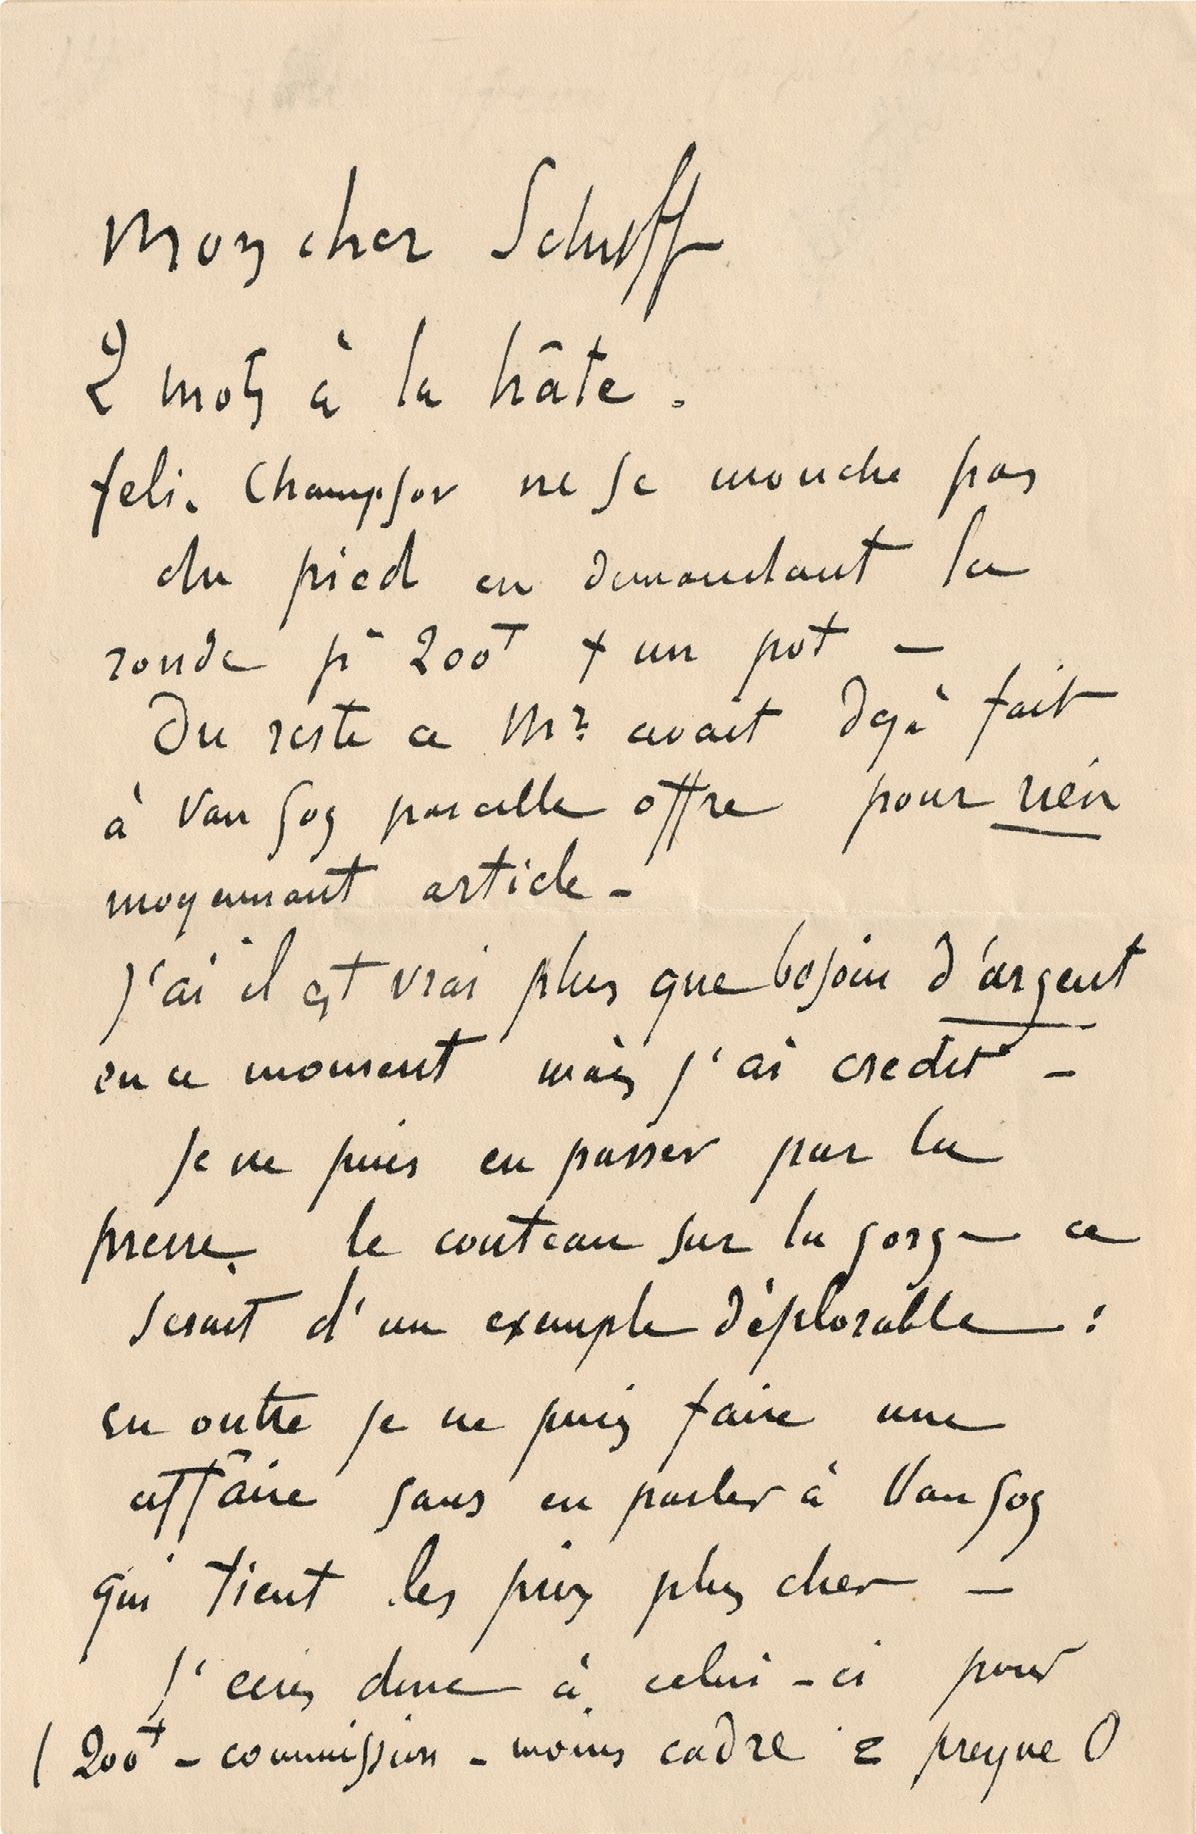 Mon cher Schuff
2 mots à la hâte.
feli. Champsor ne se mouche pas
du pied en demandant la
ronde pr 200f + un pot –
Du reste ce Mr avait dejà fait
à Van Gog pareille offre pour rien
moyennant article –
J'ai il est vrai plus que besoin d'argent
en ce moment mais j'ai credit –
Je ne puis en passer par la
presse. le couteau sur la gorge ce
serait d'un exemple déplorable :
En outre je ne puis faire une
affaire sans en parler à Van Gog
qui tient les prix plus cher –
J'ecris donc à celui-ci pour
( 200f – commission – moins cadre = presque 0